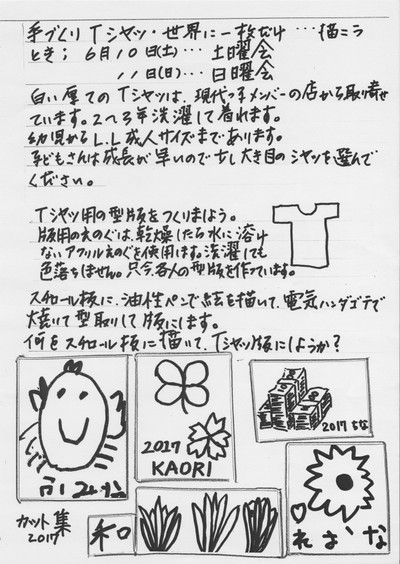 手づくりTシャツ・世界に一枚だけ…描こう
とき；6月10日(土)… 土曜会
11日(日)… 日曜会
白い厚てのTシャツは、現代っ子メンバーの店から取り寄せ
ています。2〜3年洗濯して着れます。
幼児からL.L成人サイズまであります。
子どもさんは成長が早いので少し大き目のシャツを選んで
ください。
Tシャツ用の型版をつくりましょう。
版用のえのぐは、乾燥したら水に溶け
ないアクリルえのぐを使用します。洗濯しても
色落ちしません。只今各人の型版を作っています。
スチロール板に、油性ペンで絵を描いて、電気ハンダゴテで
焼いて型取りして版にします。
何をスチロール板に描いて、Tシャツ版にしようか？
2017
KAORI
2017 ちな
れおな
和
カット集
2017